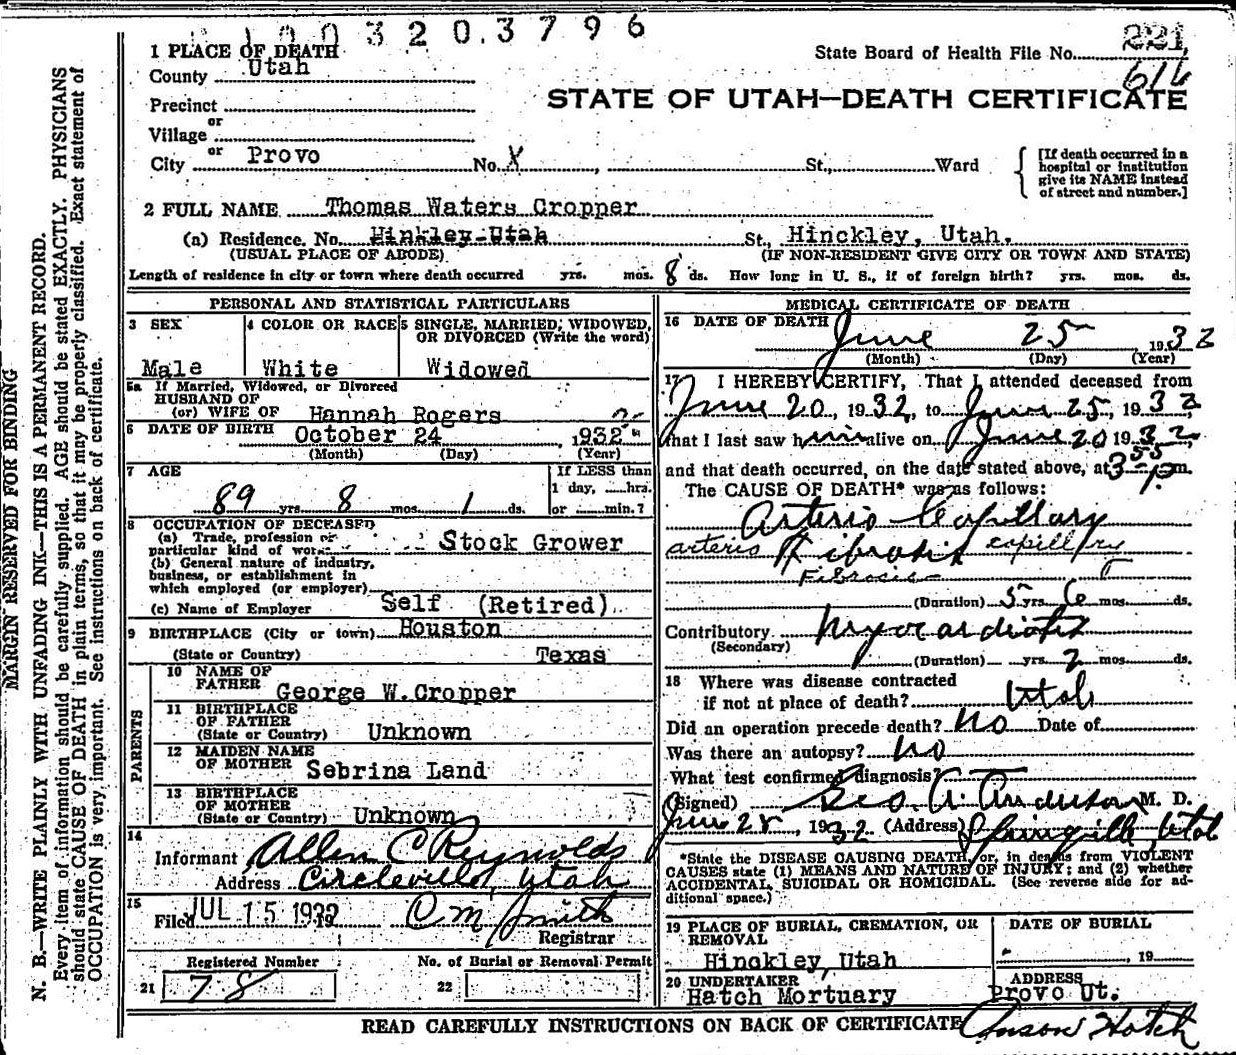 1003203796
1 PLACE OF DEATH
State Board of Health File No. 221
616
County Utah
STATE OF UTAH—DEATH CERTIFICATE
Precinct
or
Village
or
City Provo No. X St., Ward
[If death occurred in a hospital or institution give its NAME instead of street and number.]
2 FULL NAME Thomas Waters Cropper
(a) Residence. No. Hinkley-Utah St., Hinckley, Utah.
(USUAL PLACE OF ABODE) (IF NON-RESIDENT GIVE CITY OR TOWN AND STATE)
Length of residence in city or town where death occurred yrs. mos. 8 ds. How long in U. S., if of foreign birth? yrs. mos. ds.
PERSONAL AND STATISTICAL PARTICULARS
3 SEX
Male
4 COLOR OR RACE
White
5 SINGLE, MARRIED, WIDOWED, OR DIVORCED (Write the word)
Widowed
5a If Married, Widowed, or Divorced
HUSBAND OF
(or) WIFE OF Hannah Rogers
6 DATE OF BIRTH October 24, 1932
(Month) (Day) (Year)
7 AGE
89 yrs. 8 mos. 1 ds.
If LESS than
1 day, hrs.
or min.?
8 OCCUPATION OF DECEASED
(a) Trade, profession or
particular kind of work Stock Grower
(b) General nature of industry,
business, or establishment in
which employed (or employer)
(c) Name of Employer Self (Retired)
9 BIRTHPLACE (City or town) Houston
(State or Country) Texas
PARENTS
10 NAME OF
FATHER George W.Cropper
11 BIRTHPLACE
OF FATHER
(State or Country) Unknown
12 MAIDEN NAME
OF MOTHER Sebrina Land
13 BIRTHPLACE
OF MOTHER
(State or Country) Unknown
14
Informant Allen C Reynolds
Address Circleville, Utah
15
Filed JUL 15 1932 C. M. Smith
Registrar
Registered Number
21 78
No. of Burial or Removal Permit
22
MEDICAL CERTIFICATE OF DEATH
16 DATE OF DEATH
June 25 1932
(Month) (Day) (Year)
17 I HEREBY CERTIFY, That I attended deceased from
June 20, 1932, to June 25, 1932
that I last saw him alive on June 20 1932
and that death occurred, on the date stated above, at 3 55 p.m.
The CAUSE OF DEATH* was as follows:
Arterio Capillary
arterio Fibrosis capillary
Fibrosis
(Duration) 5 yrs. 6 mos. ds.
Contributory Myocarditis
(Secondary)
(Duration) yrs. 2 mos. ds.
18 Where was disease contracted
if not at place of death? Utah
Did an operation precede death? No Date of
Was there an autopsy? No
What test confirmed diagnosis?
(Signed) Geo. A. Anderson M. D.
June 25, 1932 (Address) Springville, Utah
*State the DISEASE CAUSING DEATH, or, in deaths from VIOLENT
CAUSES state (1) MEANS AND NATURE OF INJURY; and (2) whether
ACCIDENTAL, SUICIDAL OR HOMICIDAL. (See reverse side for ad-
ditional space.)
19 PLACE OF BURIAL, CREMATION, OR
REMOVAL
Hinckley, Utah
DATE OF BURIAL
, 19
20 UNDERTAKER
Hatch Mortuary
ADDRESS
Provo Ut.
READ CAREFULLY INSTRUCTIONS ON BACK OF CERTIFICATE Anson Hatch
MARGIN RESERVED FOR BINDING
N. B.—WRITE PLAINLY WITH UNFADING INK—THIS IS A PERMANENT RECORD.
Every item of information should be carefully supplied. AGE should be stated EXACTLY. PHYSICIANS
should state CAUSE OF DEATH in plain terms, so that it may be properly classified. Exact statement of
OCCUPATION is very important. See instructions on back of certificate.